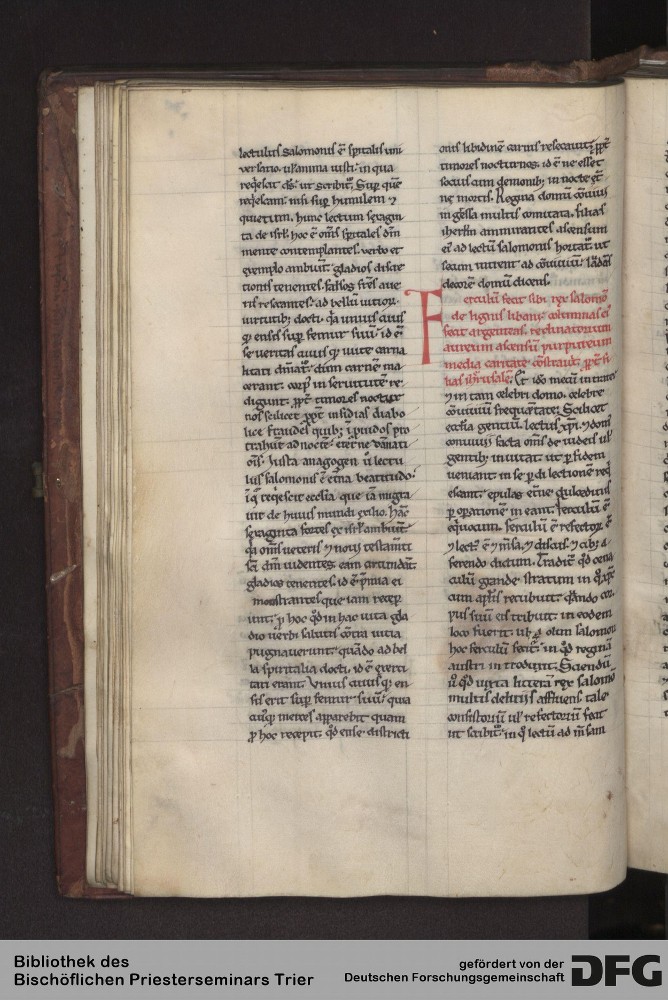 lectulus salomonis ē spiritalis uni
uersario. ul anima iusti. in qua
requiescat ds. ut scribit. Sup quē
requiescam. nisi sup humilem ⁊
quietum. hunc lectum sexagin
ta de isrl. hoc ē oms spitales dm̄
mente contemplantes. uerbo et
exemplo ambiunt. gladios discre
tionis tenentes. falsos frēs aue
ris resecantes. ad bellū uitior.
uirtutib; docti. qa unius cuius
q; ensis sup femur suū. id ē
se ueritas cuius q; uiuere carna
litati dnāt. dum carnē ma
cerant. corp in seruitutē re
digunt. ppt timores noctur
nos scilicet ppt insidias diabo
lice fraudes
trahunt ad nocte. et
Iuxta anagogen ū lectu
lus salomonis ē etna beatitudo.
i q requiescit ecclia. que iā migra
uit de huius mundi exilio. Hāc
sexaginta fortes ex isrl ambiunt.
qa oms ueteris ⁊ noui testamti
sci dm uidentes. eam circundāt.
gladios tenentes. id ē pmia ei
monstrantes que iam recep
unt. p hoc qd in hac uita gla
dio uerbi salutis cōtra uitia
pugnauerunt. quādo ad bel
la spiritalia docti. id ē exerci
tati erant. Vnius cuius q; en
sis erit sup femur suū. quia
cuiq; merces apparebit quam
p hoc recepit. qd ense districti
onis libidinē carnis resecauit. ppt
timores nocturnos. id ē ne esset
socius cum demonib; in nocte etne
mortis. Regina domū cōuiuii
ingressa multis comitata. filias
iherlm ammirantes ascensum
ei ad lectū salomonis hortat ut
secum intrent ad cōuiuiū. laudās
decorē domū dicens.
Ferculū fecit sibi rex salomō
de lignis libani. columnas ei
fecit argenteas. reclinatorium
aureum ascensū purpureum
media caritate cōstrauit. ppt fi
lias ihrusalē. Et ido mecū intrate
⁊ in tam celebri domo. celebre
cōuiuiū frequentate. Scilicet
ecclia gentiū. lectus xpi. ⁊ domus
conuiuii facta oms de iudeis ul
gentib; inuitat. ut p fidem
ueniant. in se p dilectionē req
escant. epulas etne dulcedinis
p opationē in eant. Ferculū ē
equocum. ferculū ē refectorium
⁊ lect ē ⁊ msa. ⁊ discus. ⁊ cib; a
ferendo dictum. Tradit qd cena
culū grande stratum in quo xpc
cum aplis recubuit. quando cor
pus suū eis tribuit. in eodem
loco fuerit. ubi olim salomon
hoc ferculū fecit. in qd reginā
austri introduxit. Sciendū
ū qd iuxta litterā rex salomō
multis delitiis affluens tale
consistoriū ul refectoriū fecit
ut scribit. in q lectū ad msam
Bibliothek des
Bischöflichen Priesterseminars Trier
gefördert von der
Deutschen Forschungsgemeinschaft
DFG